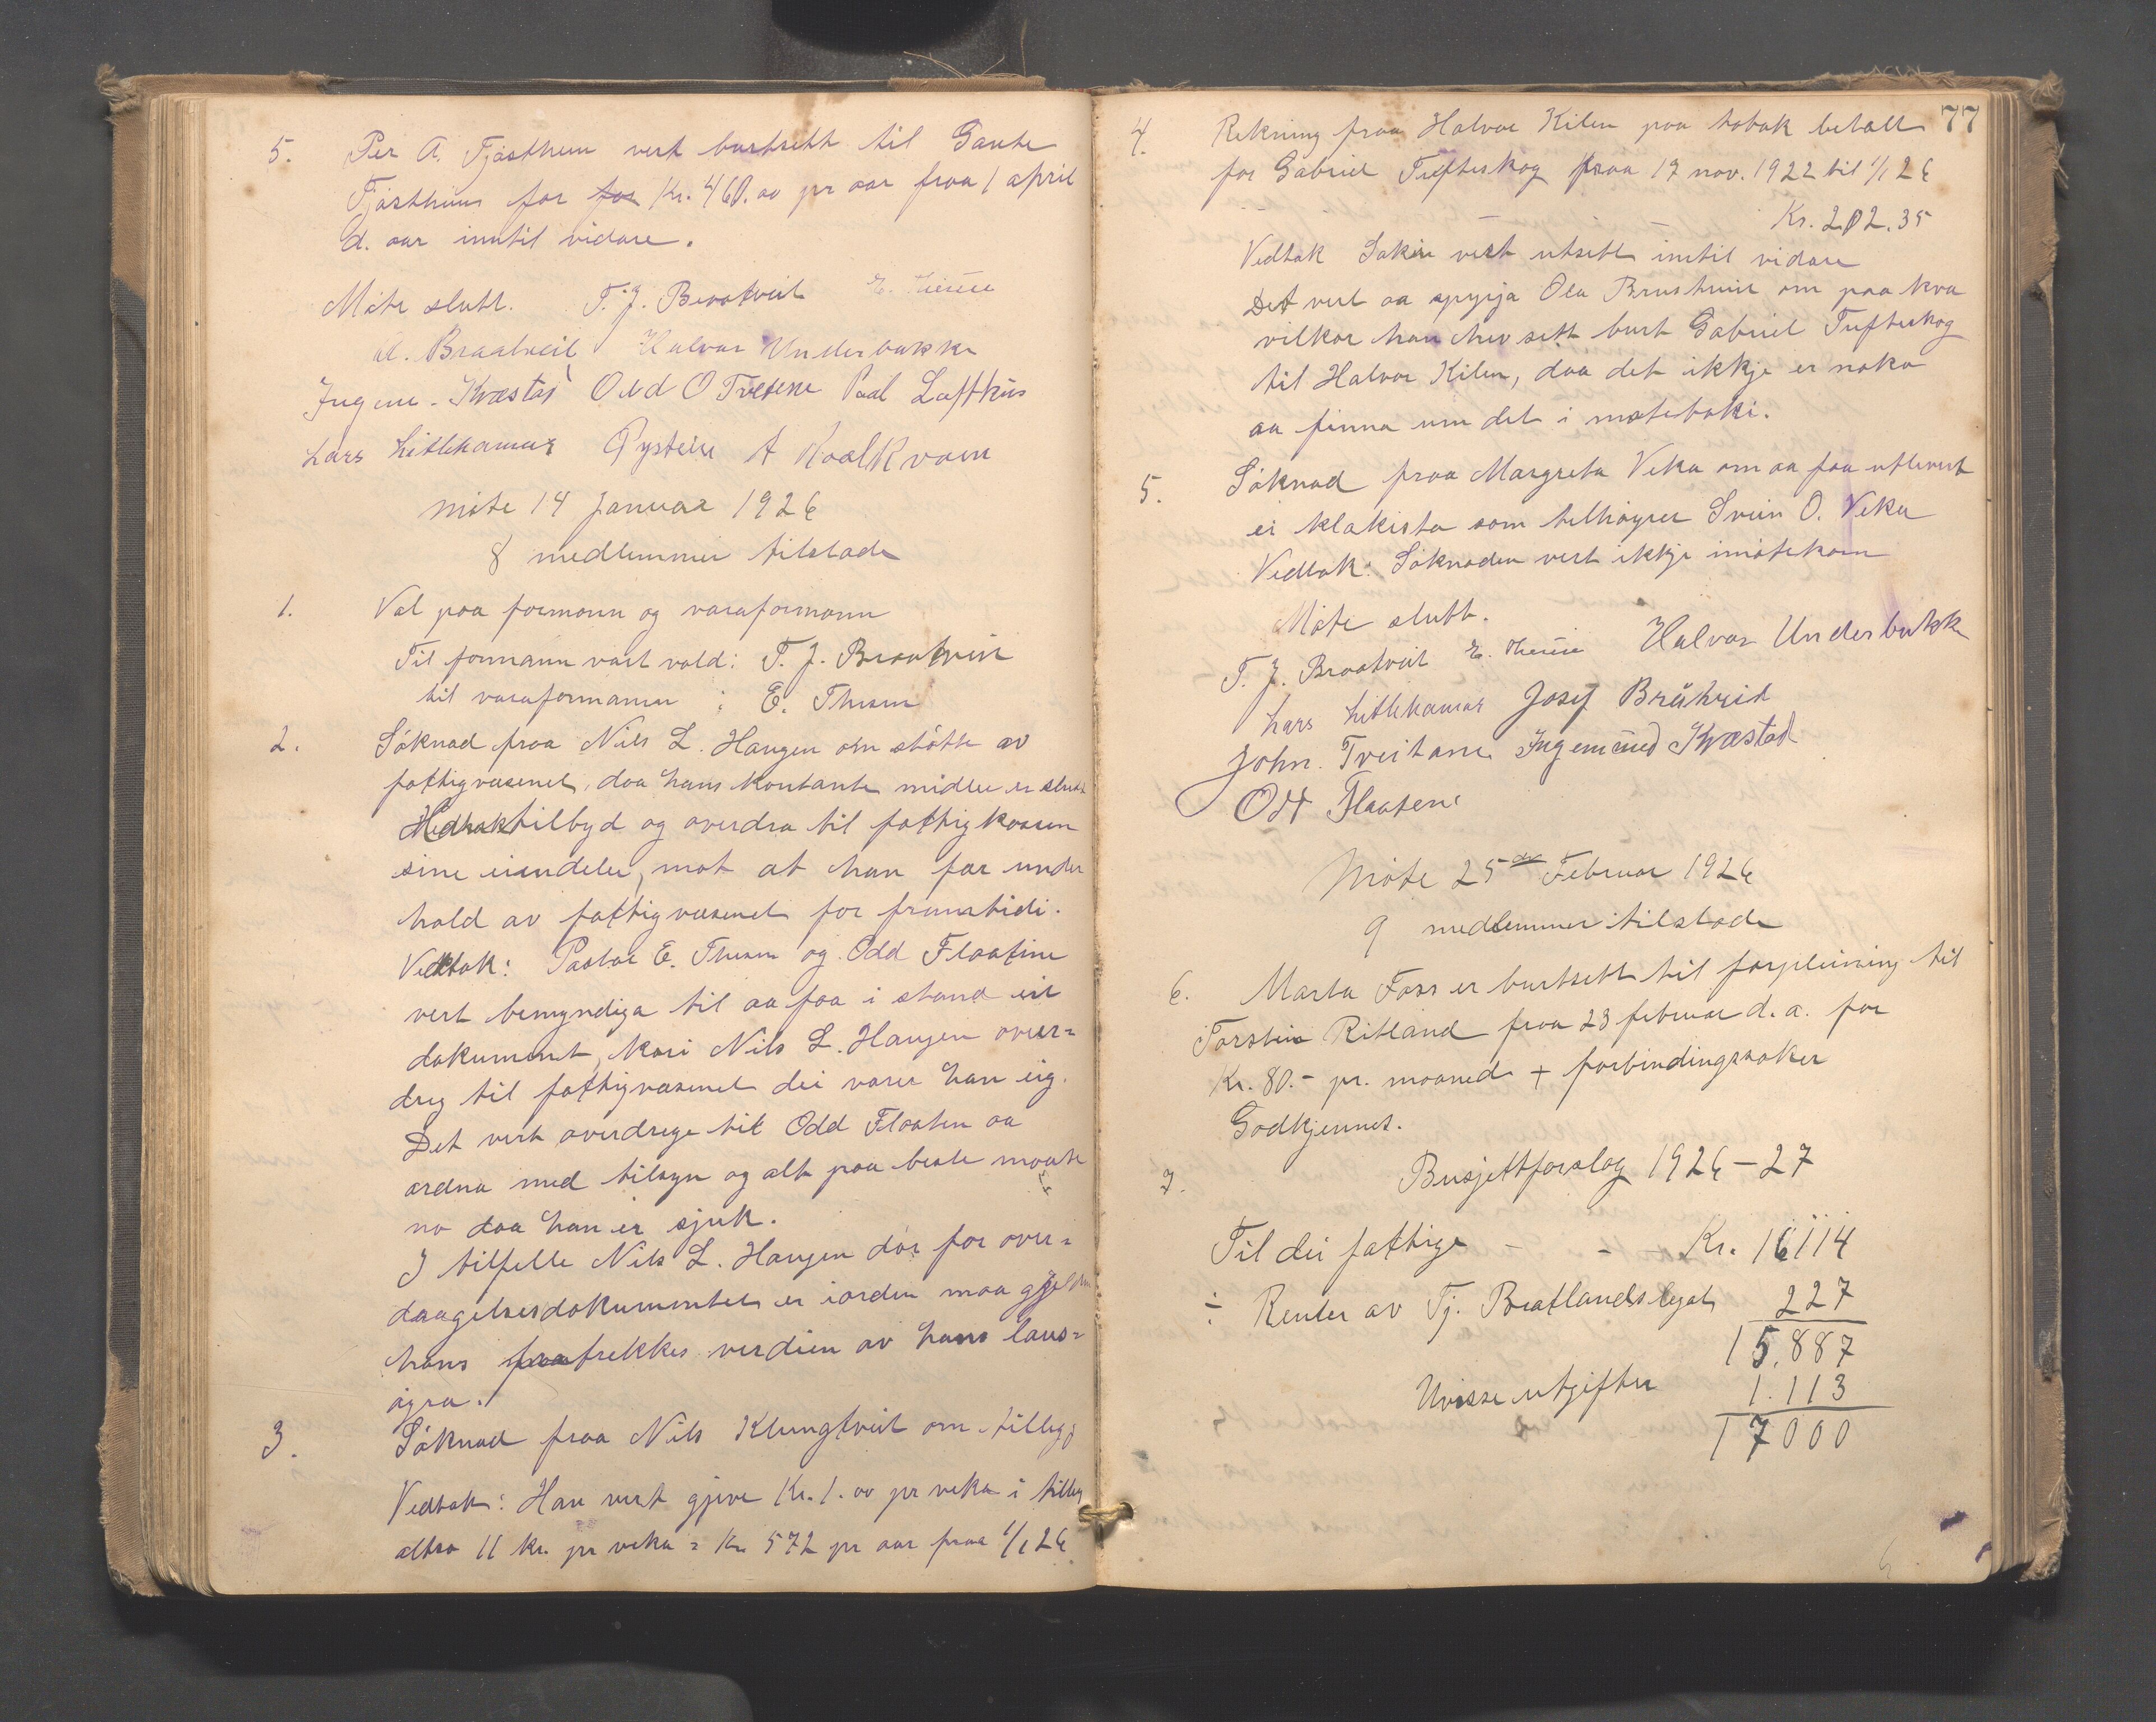 5. Per A. Fjåsthun vert burtsett til Gaute
Fjåsthun for for Kr. 460.00 pr aar fraa 1 april
d. aar inntil vidare.
Møte slutt. T. J. Braatveit E. Thesen
A. Braatveit Halvar Underbakke
Ingem. Kvæstad Odd O Tveitene Paal Lofthus
Lars Litlehamar Øystein A Kvalkvam
møte 14 Januar 1926
8 medlemmer tilstade
1. Val paa formann og varaformann
Til formann vart vald: T. J. Braatveit
til varaformann : E. Thesen
2. Søknad fraa Nils L. Haugen om støtte av
fattigvæsenet, daa hans kontante midler er slutt
tilbyd og overdra til fattigkassen
sine eiendeler, mot at han far under
hald av fattigvæsenet for framtidi.
Vedtak: Pastor E. Thesen og Odd Flaatene
vert bemyndiga til aa faa i stand eit
dokument, kori Nils L. Haugen over=
dreg til fattigvæsenet dei varer han eig.
Det vert overdrege til Odd Flaaten aa
ordna med tilsyn og alt paa beste maate
no daa han er sjuk.
I tilfelle Nils L. Haugen dør før over=
dragelsesdokumentet er iorden maa gjelden
hans fra trekkes verdien av hans laus=
øyra.
3. Søknad fraa Nils Klungtveit om tillegg
Vedtak: Han vert gjeve Kr. 1.00 pr veka i tilleg
altso 11 kr. pr veka = Kr 572 pr aar fraa 1/1 26
77
4. Rekning fraa Halvor Kilen paa tobak betalt
for Gabriel Tufteskog fraa 17 nov. 1922 til 1/1 26
Kr. 202.35
Vedtak Saken vert utsett inntil vidare
Det vert aa spyrja Ola Brusthun om paa kva
vilkor han hev sett burt Gabriel Tufteskog
til Halvor Kilen, daa det ikkje er noko
aa finna um det i møteboki.
5. Søknad fraa Margreta Veka om aa faa utlevert
ei klækista som tilhøyrer Svein O. Veka
Vedtak: Søknaden vert ikkje imøtekom
Møte slutt.
T. J. Braatveit E. Thesen Halvar Underbakk
Lars Litlehamar Josef Bråtveit
John. Tveitane Ingemund Kvæstad
Odd Flaatene
Møte 25de Februar 1926
9 medlemmer tilstade
6. Marta Foss er burtsett til forpleining til
Torstein Ritland fraa 23 februar d. a. for
Kr. 80.- pr. maaned + forbindingssaker
Godkjennes.
7. Busjettforslag 1926-27
Til dei fattige - - Kr. 16114
÷ Renter av Tj. Bratlandslegat 227
15.887
Uvisse utgifter 1.113
17000